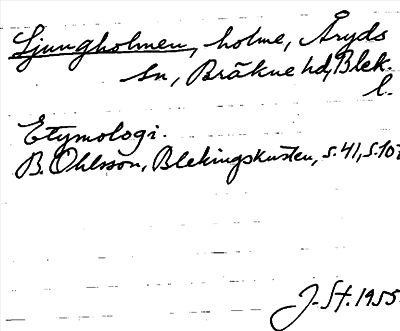 Ljungholmen, holme, Åryds
sn, Bräkne hd, Blek.
l.
Etymologi.
B. Ohlsson, Blekingskusten, s. 41, s. 107
J-St. 1955